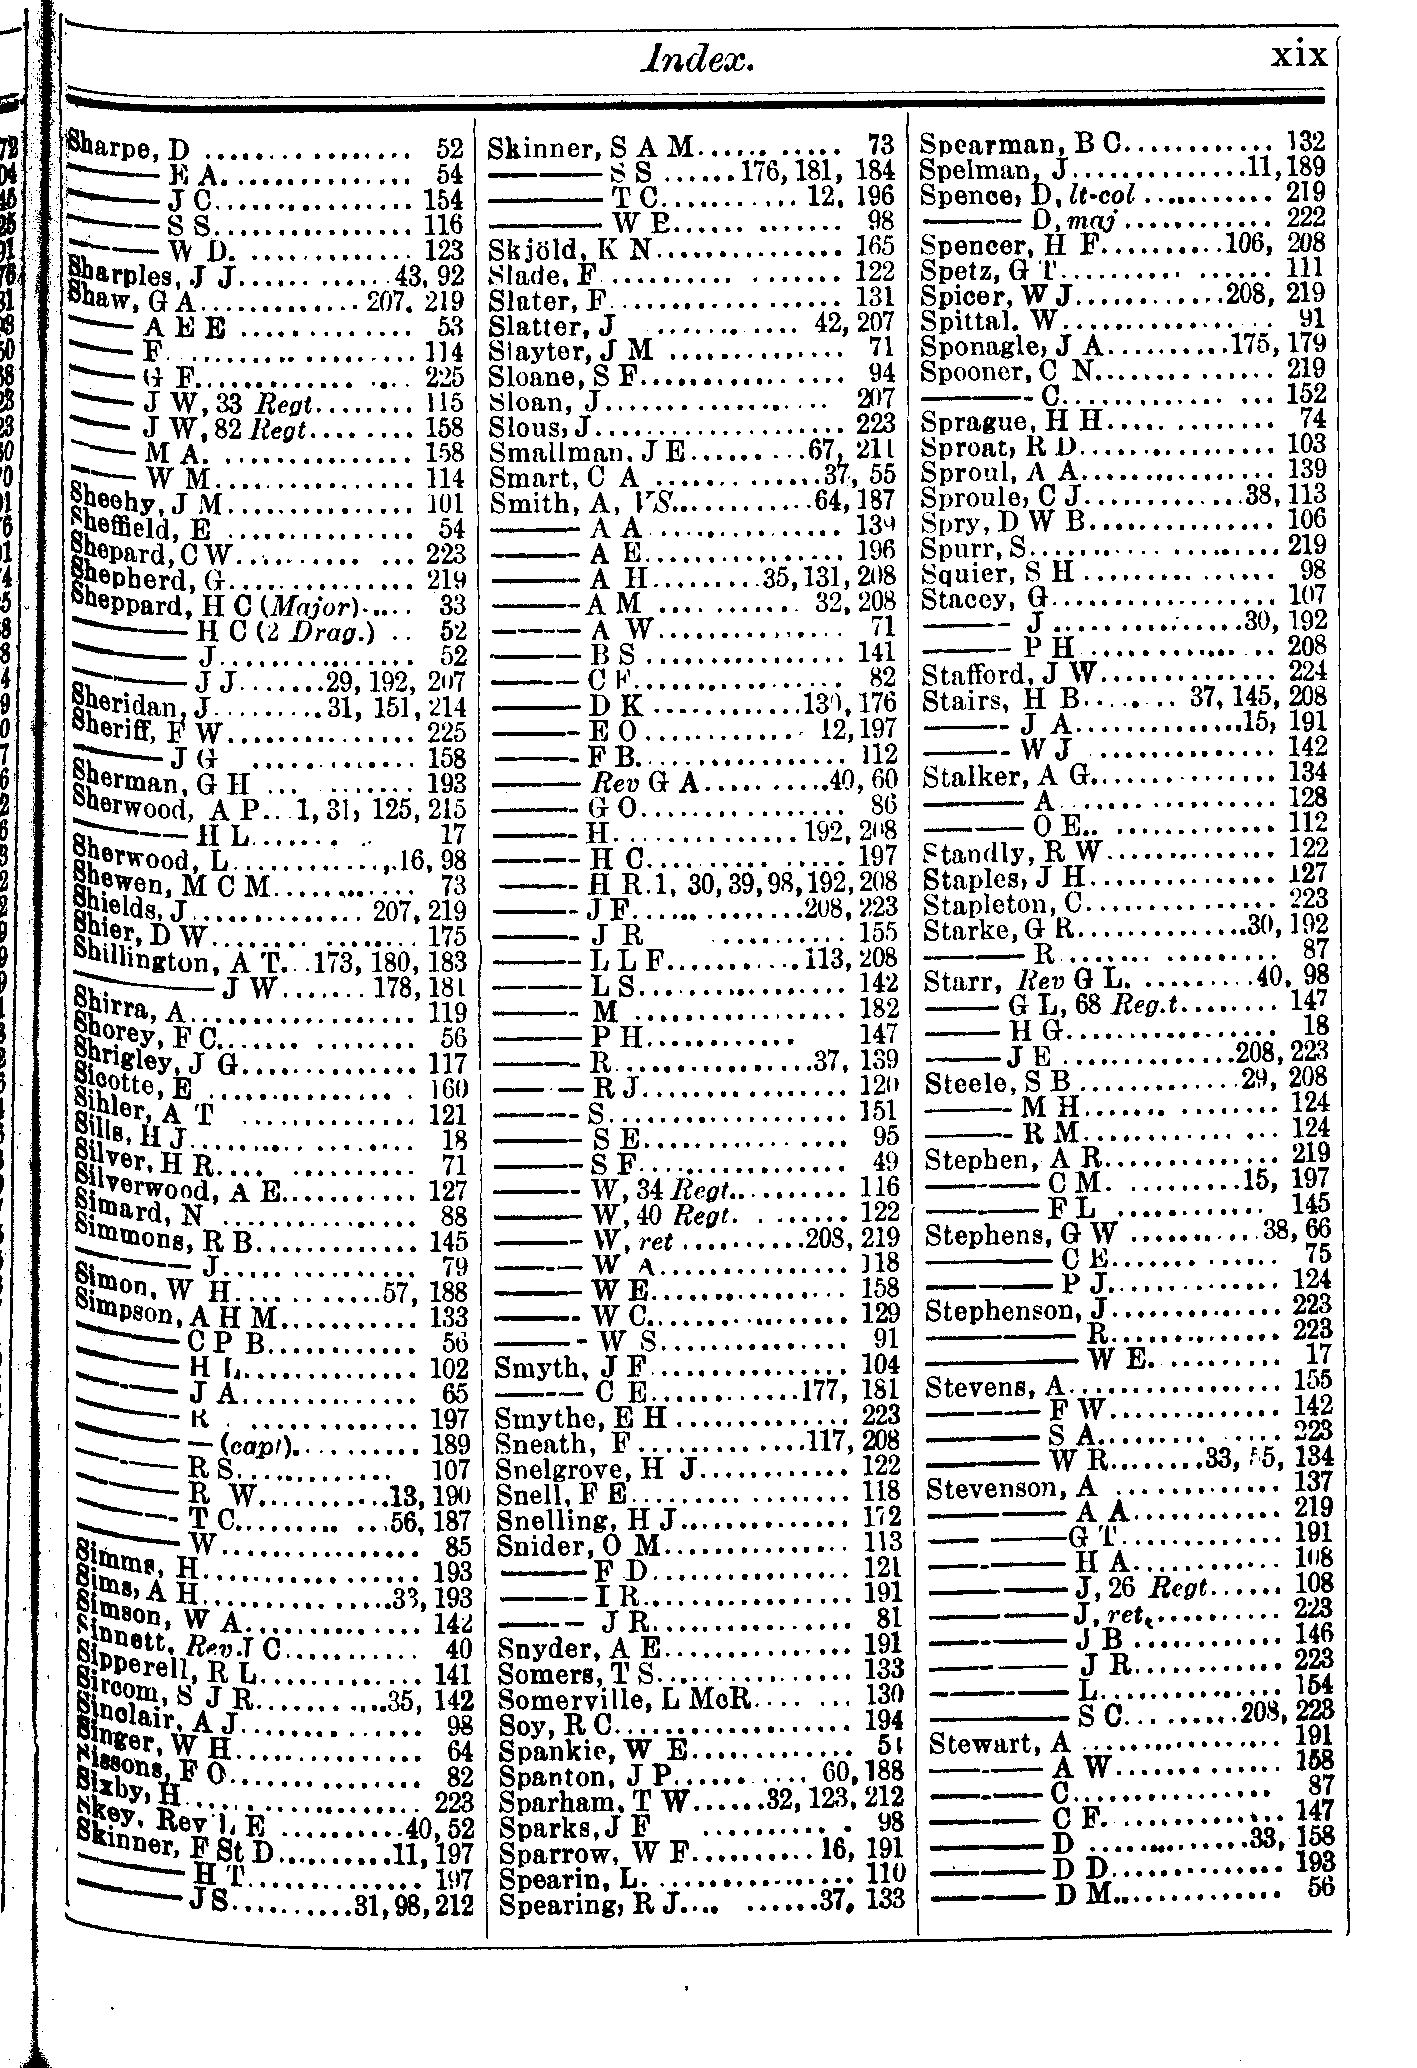 Index.
xix
Sharpe, D .................. 52
——— E A................ 54
——— J C................. 154
——— S S................. 116
——— W D. ............. 123
Sharples, J J............. 43, 92
Shaw, G A............. 207, 219
——— A E E ............. 53
——— F .................. 114
——— G F................. 225
——— J W, 33 Regt........ 115
——— J W, 82 Regt........ 158
——— M A. ............... 158
——— W M................. 114
Sheehy, J M............... 101
Sheffield, E ............... 54
Shepard, C W............... 223
Shepherd, G............... 219
Sheppard, H C (Major)..... 33
——— H C (2 Drag.) .. 52
——— J................. 52
——— J J.......29, 192, 207
Sheridan, J.........31, 151, 214
Sheriff, F W............... 225
——— J G ............. 158
Sherman, G H ... ........ 193
Sherwood, A P.. 1, 31, 125, 215
——— H L....... . 17
Sherwood, L.............16, 98
Shewen, M C M............ 73
Shields, J.............. 207, 219
Shier, D W................. 175
Shillington, A T...173, 180, 183
——— J W....... 178, 181
Shirra, A................... 119
Shorey, F C................ 56
Shrigley, J G.............. 117
Sicotte, E ................. 160
Sihler, A T ............... 121
Sills, H J................... 18
Silver, H R.... .......... 71
Silverwood, A E........... 127
Simard, N ................ 88
Simmons, R B............. 145
——— J................. 79
Simon, W H............57, 188
Simpson, A H M........... 133
——— C P B............ 56
——— H L.............. 102
——— J A.............. 65
——— R . .............. 197
——— — (capt)........... 189
——— R S............. 107
——— R W...........13, 190
——— T C......... ...56, 187
——— W................ 85
Simms, H.................. 193
Sims, A H...............33, 193
Simson, W A............... 142
Sinnett, Rev J C........... 40
Sipperell, R L.............. 141
Sircom, S J R..........35, 142
Sinclair, A J............... 98
Singer, W H............... 64
Sissons, F O............... 82
Sixby, H................... 223
Skey, Rev L E ..........40, 52
Skinner, F St D..........11, 197
——— H T.............. 197
——— J S..........31, 98, 212
Skinner, S A M...... ..... 73
——— S S ......176, 181, 184
——— T C........... 12, 196
——— W B...... ....... 98
Skjöld, K N................ 165
Slade, F.................... 122
Slater, F................... 131
Slatter, J ............ 42, 207
Slayter, J M ............... 71
Sloane, S F................. 94
Sloan, J.................... 207
Slous, J.................... 223
Smallman, J E.........67, 211
Smart, C A ..............37, 55
Smith, A, VS............64, 187
——— A A ................ 139
——— A E................. 196
——— A H.........35, 131, 208
——— A M ............ 32, 208
——— A W................ 71
——— B S ................ 141
——— C F................. 82
——— D K ............130, 176
——— E O............. 12, 197
——— F B................. 112
——— Rev G A...........40, 60
——— G O................ 86
——— H................192, 208
——— H C................ 197
——— H R.1, 30, 39, 98, 192, 208
——— J F...............208, 223
——— J R ........... 155
——— L L F...........113, 208
——— L S................ 142
——— M ................. 182
——— P H............. 147
——— R................37, 139
——— R J................ 120
——— S................... 151
——— S E................ 95
——— S F................. 49
——— W, 34 Regt.......... 116
——— W, 40 Regt. ........ 122
——— W, ret ..........208, 219
——— W A............... 118
——— W E................ 158
——— W C................ 129
——— W S................ 91
Smyth, J F................. 104
——— C E............177, 181
Smythe, E H .............. 223
Sneath, F .............117, 208
Snelgrove, H J............ 122
Snell, F E.................. 118
Snelling, H J.............. 172
Snider, O M............... 113
——— F D................ 121
——— I R................. 191
——— J R................ 81
Snyder, A E............... 191
Somers, T S............... 133
Somerville, L McR.... ... 130
Soy, R C................... 194
Spankie, W E............. 51
Spanton, J P........... 60, 188
Sparham, T W......32, 123, 212
Sparks, J F ........... . 98
Sparrow, W F.......... 16, 191
Spearin, L................. 110
Spearing, R J.... ......37, 133
Spearman, B C............ 132
Spelman, J..............11, 189
Spence, D, lt-col ........... 219
——— D, maj ............ 222
Spencer, H F..........106, 208
Spetz, G T................. 111
Spicer, W J............208, 219
Spittal. W................. 91
Sponagle, J A..........175, 179
Spooner, C N.............. 219
——— C................ 152
Sprague, H H.............. 74
Sproat, R D................ 103
Sproul, A A................ 139
Sproule, C J.............38, 113
Spry, D W B............... 106
Spurr, S.................... 219
Squier, S H................ 98
Stacey, G.................. 107
——— J ...............30, 192
——— P H ............... 208
Stafford, J W.............. 224
Stairs, H B....... 37, 145, 208
——— J A..............15, 191
——— W J ............... 142
Stalker, A G............... 134
——— A .................. 128
——— O E.. ............. 112
Standly, R W.............. 122
Staples, J H................ 127
Stapleton, C............... 223
Starke, G R..............30, 192
——— R................. 87
Starr, Rev G L. .........40, 98
——— G L, 68 Regt........ 147
——— H G................. 18
——— J E ..............208, 223
Steele, S B.............29, 208
——— M H............... 124
——— R M............... 124
Stephen, A R.............. 219
——— C M. ..........15, 197
——— F L ............ 145
Stephens, G W ...........38, 66
——— C E............. 75
——— P J.............. 124
Stephenson, J.............. 223
——— R............. 223
——— W E.......... 17
Stevens, A................. 155
——— F W.............. 142
——— S A............... 223
——— W R........33, 55, 134
Stevenson, A .............. 137
——— A A............ 219
——— G T............. 191
——— H A............ 108
——— J, 26 Regt...... 108
——— J, ret........... 223
——— J B ............ 146
——— J R............ 223
——— L............... 154
——— S C.........208, 223
Stewart, A ................ 191
——— A W.............. 158
——— C................. 87
——— C F............... 147
——— D ..............33, 158
——— D D.............. 193
——— D M.............. 56